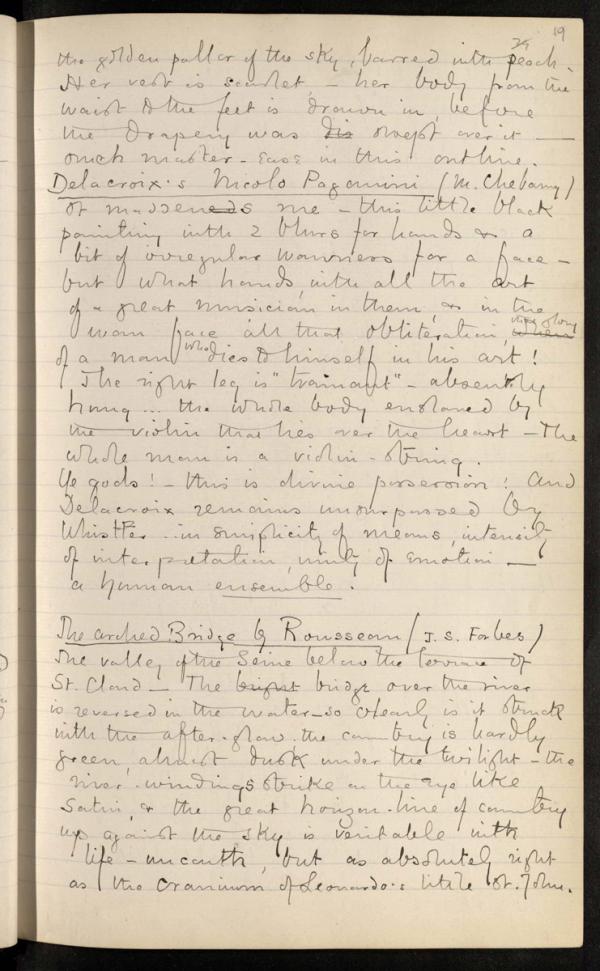 19
24
the golden pallor of the sky, barred with peach.
Her vest is scarlet, – her body from the
waist to the feet is drawn in, before
the drapery was dis swept over it —
much master-ease in this outline.
Delacroix's Nicolo Paganini (M. Cheramy)
me – this little black
painting with 2 blurs for hands & a
bit of irregular wanness for a face –
but what hands, with all the art
of a great musician in them, & in the
wan face all that obliteration, the glory
of a man who dies to himself in his art!
The right leg is "trainant" – absently
hung ... the whole body enslaved by
the violin that lies over the heart – The
whole man is a violin-string.
Ye gods! – this is divine possession! And
Delacroix remains unsurpassed by
Whistler .. in simplicity of means, intensity
of interpretation, unity of emotion –
a human ensemble.
The arched Bridge by Rousseau (J. S. Forbes)
The valley of the Seine below the terrace of
St. Cloud – The bright bridge over the river
is reversed in the water – so clearly is it struck
with the after-glow. the country is hardly
green, almost dusk under the twilight – the
river-windings strike on the eye like
satin, & the great horizon-line of country
up against the sky is veritable with
life – uncouth, but as absolutely right
as the cranium of Leonardo's little St. John.